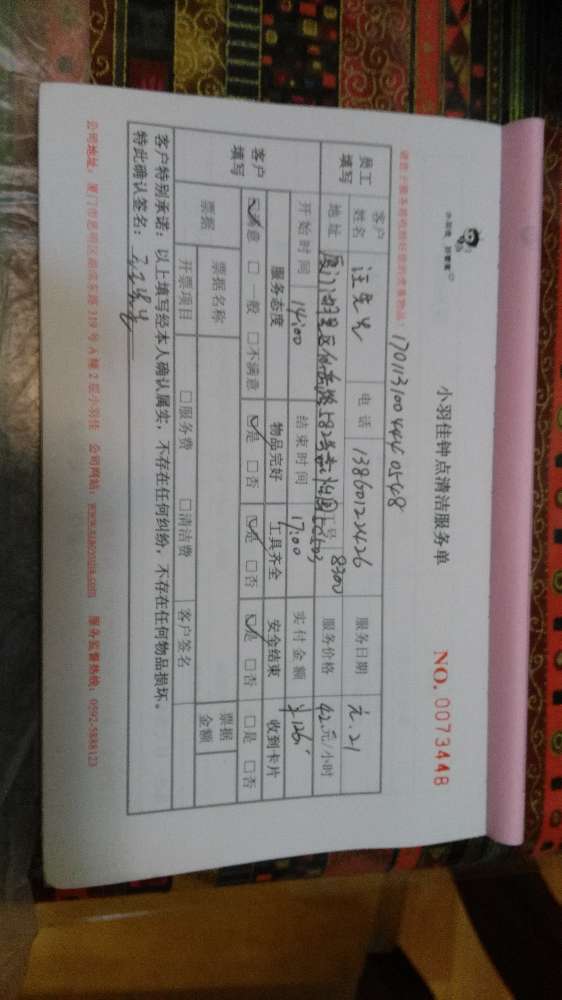 小羽佳钟点清洁服务单
NO. 0073448
170113100444 0548
员工填写 客户姓名 汪先生 电话 13860122426 服务日期 元.21
地址 工号 8300 服务价格 42元/小时
开始时间 14:00 结束时间 17:00 实付金额 ￥126
客户填写 服务态度 物品完好 工具齐全 安全结束 收到卡片
☑满意 □一般 □不满意 ☑是 □否 ☑是 □否 ☑是 □否 □是 □否
票据 票据名称 票据金额
开票项目 □服务费 □清洁费 客户签名
客户特别承诺：以上填写经本人确认属实，不存在任何纠纷，不存在任何物品损坏。
特此确认签名：
公司地址：厦门市思明区湖滨东路319号A幢2层小羽佳 公司网站：www.xiaoyujia.com 服务监督热线：0592-5888123